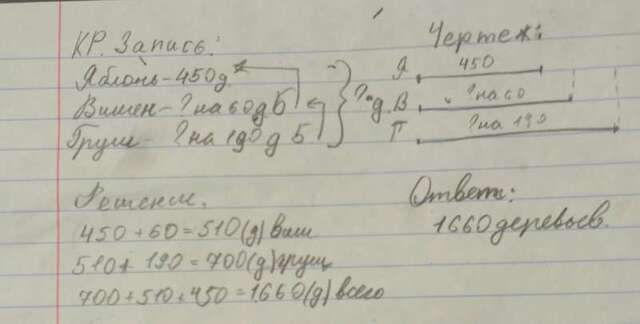 КР. Запись:
Яблонь - 450 д.
Вишен - ? на 60 д Б
Груш - ? на 190 д Б
? д.
Чертеж:
Я 450
В ? на 60
Г ? на 190
Решение.
450 + 60 = 510 (д) виш
510 + 190 = 700 (д) груш
700 + 510 + 450 = 1660 (д) всего
Ответ:
1660 деревьев.